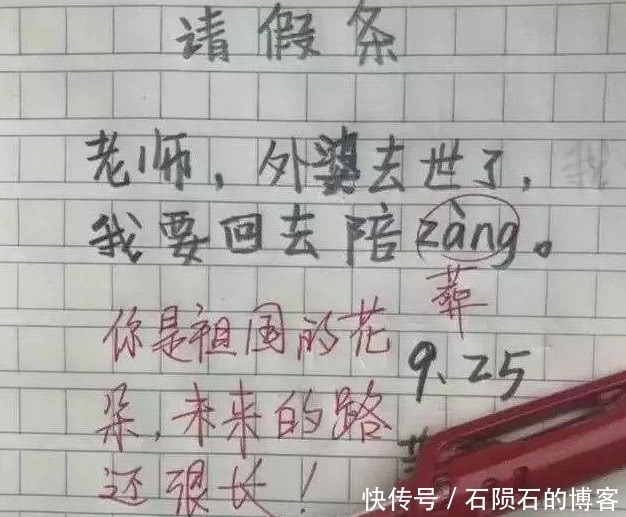 请假条
老师，外婆去世了，
我要回去陪zàng。
葬
你是祖国的花
朵，未来的路
还很长！
9.25
快传号/石陨石的博客